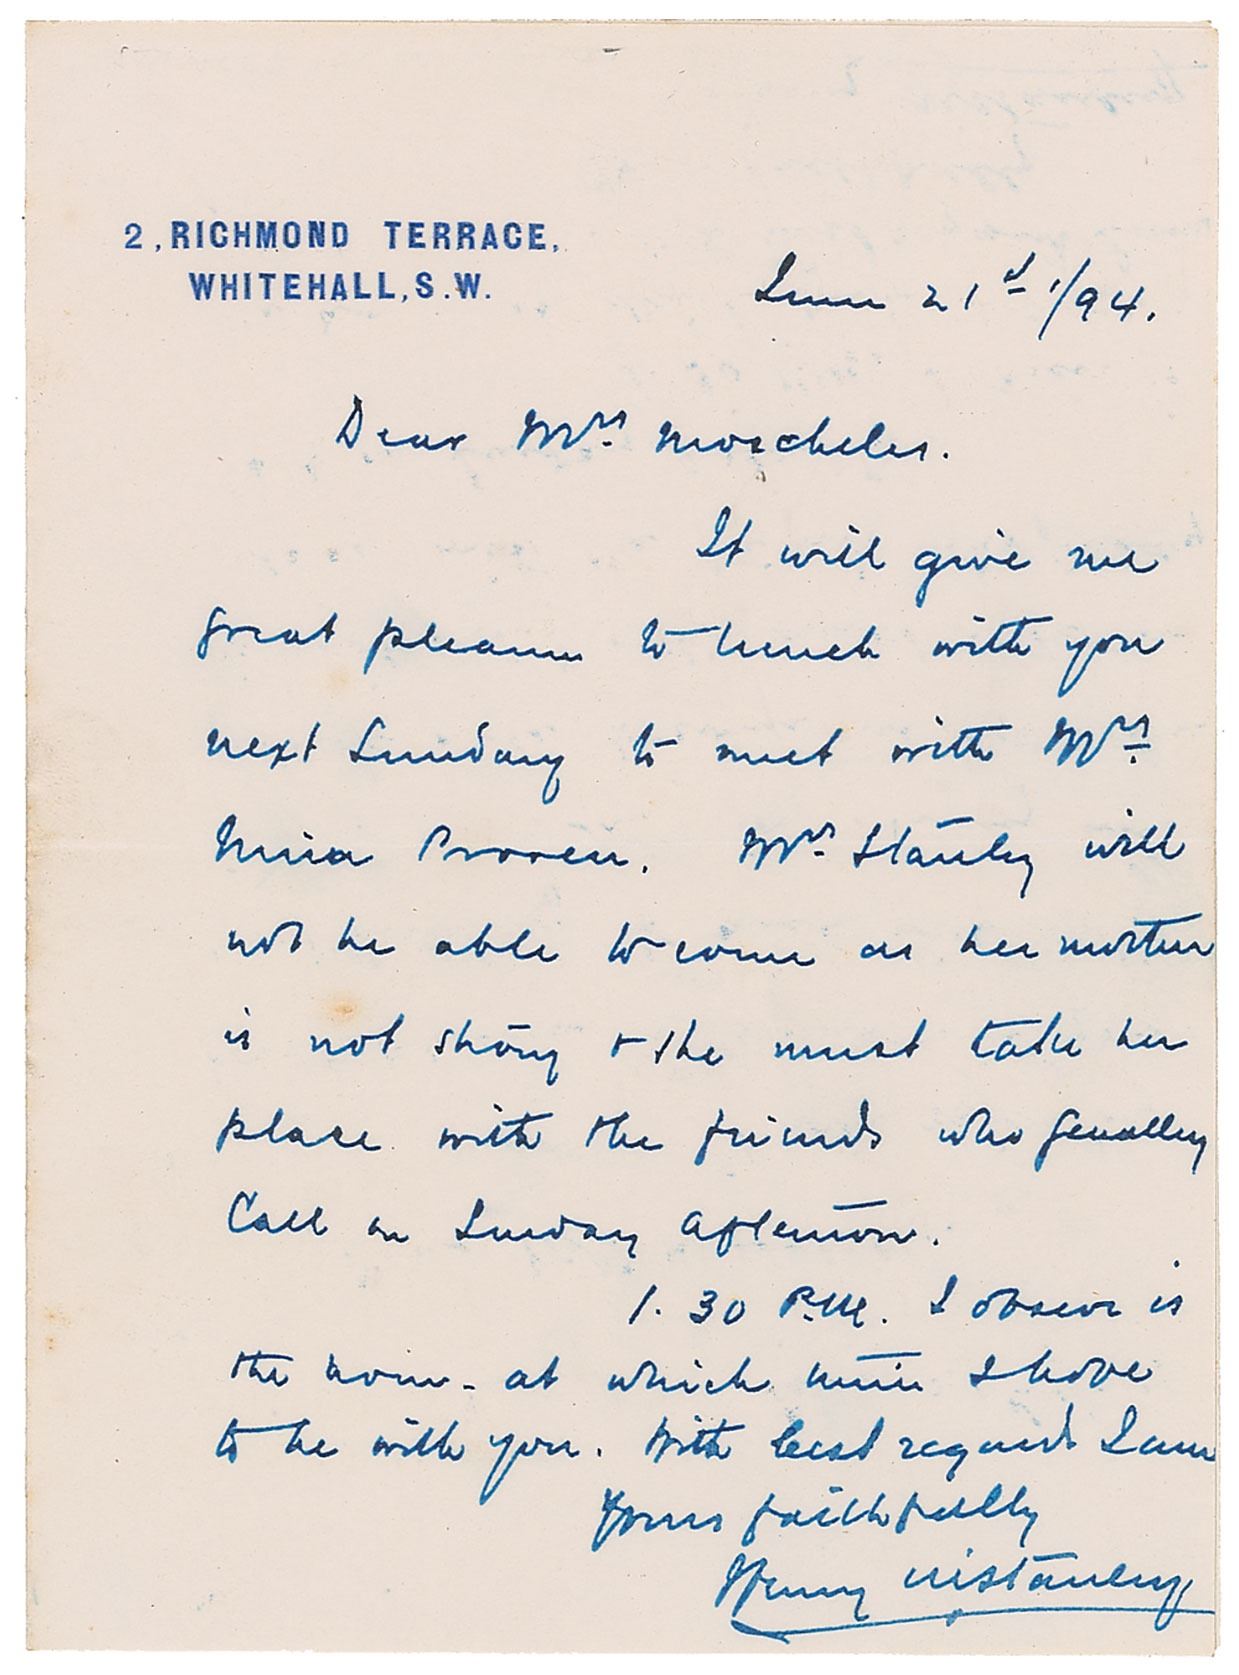 2, RICHMOND TERRACE,
WHITEHALL, S.W.
June 21st 1/94.
Dear Mrs Moscheles.
It will give me
great pleasure to lunch with you
next Sunday to meet with Mrs
Mrs Stanley will
not be able to come as her mother
is not strong & she must take her
place with the friends who generally
Call on Sunday afternoon.
1.30 P.M. I observe is
the hour - at which time I hope
to be with you. With best regards I am
Yours faithfully
Henry M Stanley